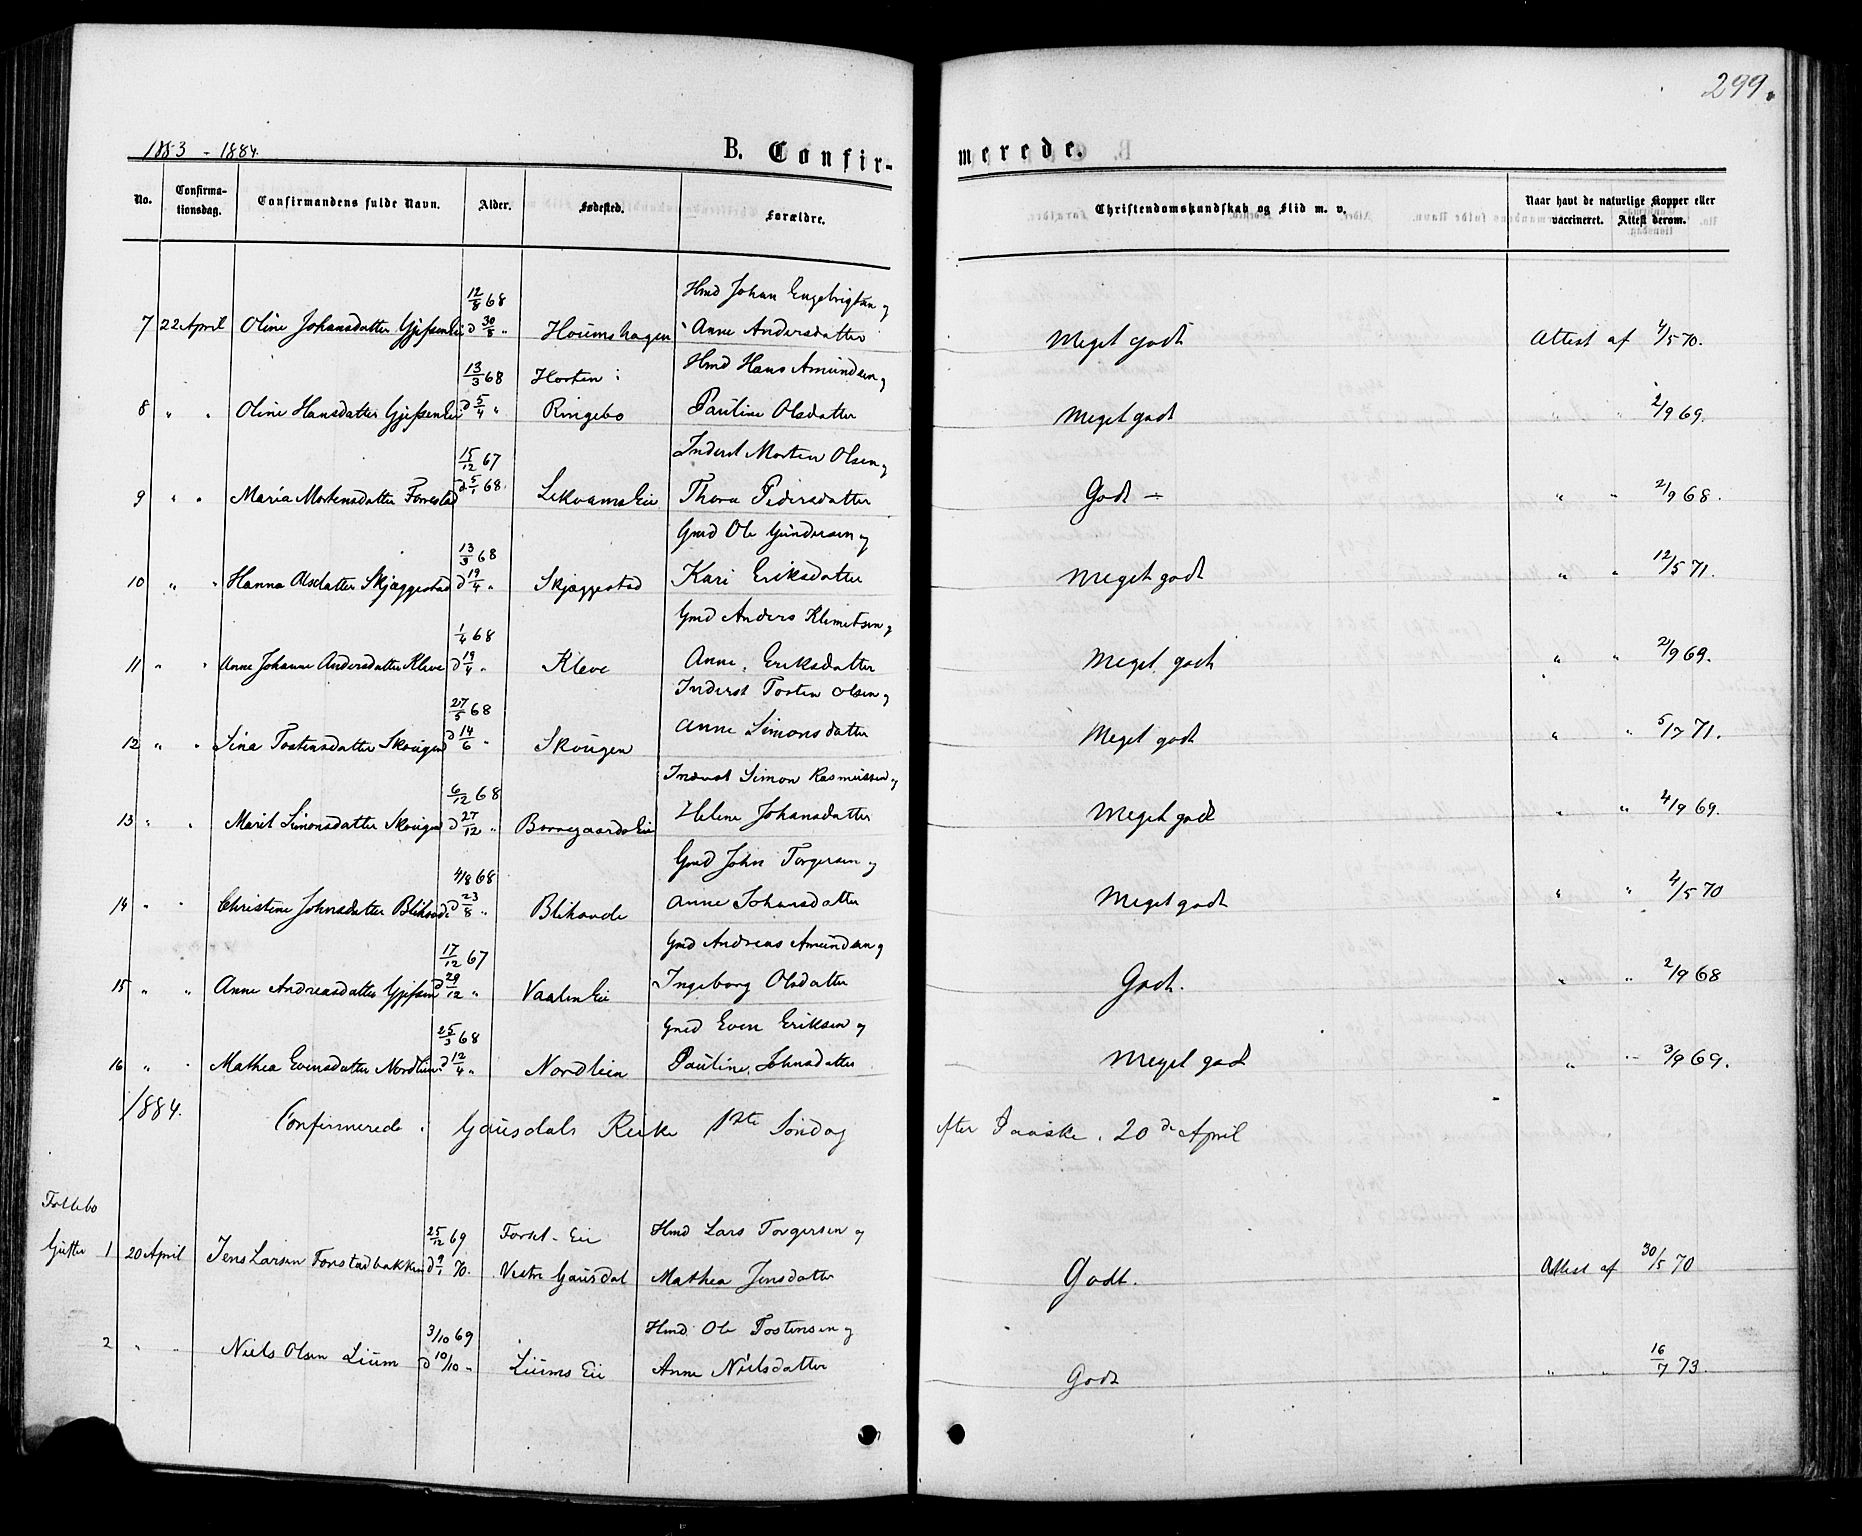 299.
1883 - 1884.
B. Confir-
merede.
No.
Confirma-
tionsdag.
Confirmandens fulde Navn.
Alder.
Fødested.
Forældre.
Christendomskundskab og Flid m. v.
Naar havt de naturlige Kopper eller
vaccineret. Attest derom.
12/8 68 Hmd Johan Engebrigtsen og
7 22 April Oline Johansdatter d 30/8 " Houmshagen Anne Andersdatter Meget godt Attest af 4/5 70.
13/3 68 Horten i Hmd Hans Amundsen og
8 " " Oline Hansdatter d 5/4 " Ringebo Pauline Olsdatter Meget godt " " 2/9 69.
15/12 67 Inderst Morten Olsen og
9 " " Maria Mortensdatter d 5/1 68. Thora Pedersdatter Godt - " " 2/9 68.
13/3 68 Gmd Ole Gundersen og
10 " " Hanna Olsdatter Skjæggestad d 19/4 " Skjæggestad Kari Eriksdatter Meget godt " " 12/5 71.
1/4 68 Gmd Anders Klimetsen og
11 " " Anne Johanne Andersdatter Kleve d 19/4 " Kleve Anne Eriksdatter Meget godt " " 2/9 69.
27/5 68 Inderst Tosten Olsen og
12 " " Sina Tostensdatter Skougen d 14/6 " Skougen Anne Simonsdatter Meget godt " " 5/7 71.
6/12 68 Inderst Simon Rasmussen og
13 " " Marit Simonsdatter Skougen d 27/12 " Helene Johansdatter Meget godt " " 4/9 69.
4/8 68 Gmd John Torgersen og
14 " " Christine Johnsdatter d 23/8 " Anne Johansdatter Meget godt " " 4/5 70
17/12 67 Gmd Andreas Amundsen og
15 " " Anne Andreasdatter d 29/12 " Ingeborg Olsdatter Godt. " " 2/9 68
25/3 68 Gmd Even Eriksen og
16 " " Mathea Evensdatter Nordlien d 12/4 " Nordlien Pauline Johnsdatter Meget godt " " 3/9 69.
1884. Confirmerede i Gausdals Kirke 1ste Søndag efter Paaske, 20de April
Follebo 25/12 69 Forset-Eie Hmd Lars Torgersen og
Gutter 1 20 April Jens Larsen d 9/1 70. Vestre Gausdal Mathea Jensdatter Godt. Attest af 30/5 70
3/10 69 Hmd Ole Tostensen og
2 " " Niels Olsen Lium d 10/10 " Liums Eie Anne Nielsdatter Godt " " 16/7 73.